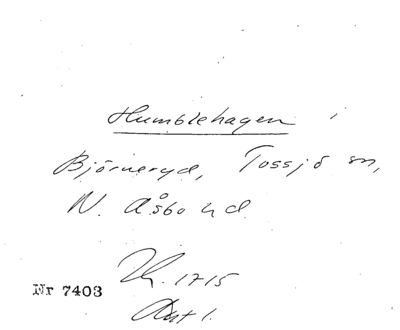 Humblehagen i
Björneryd, Tossjö sn,
N. Åsbo hd.
Nr 7403
1715